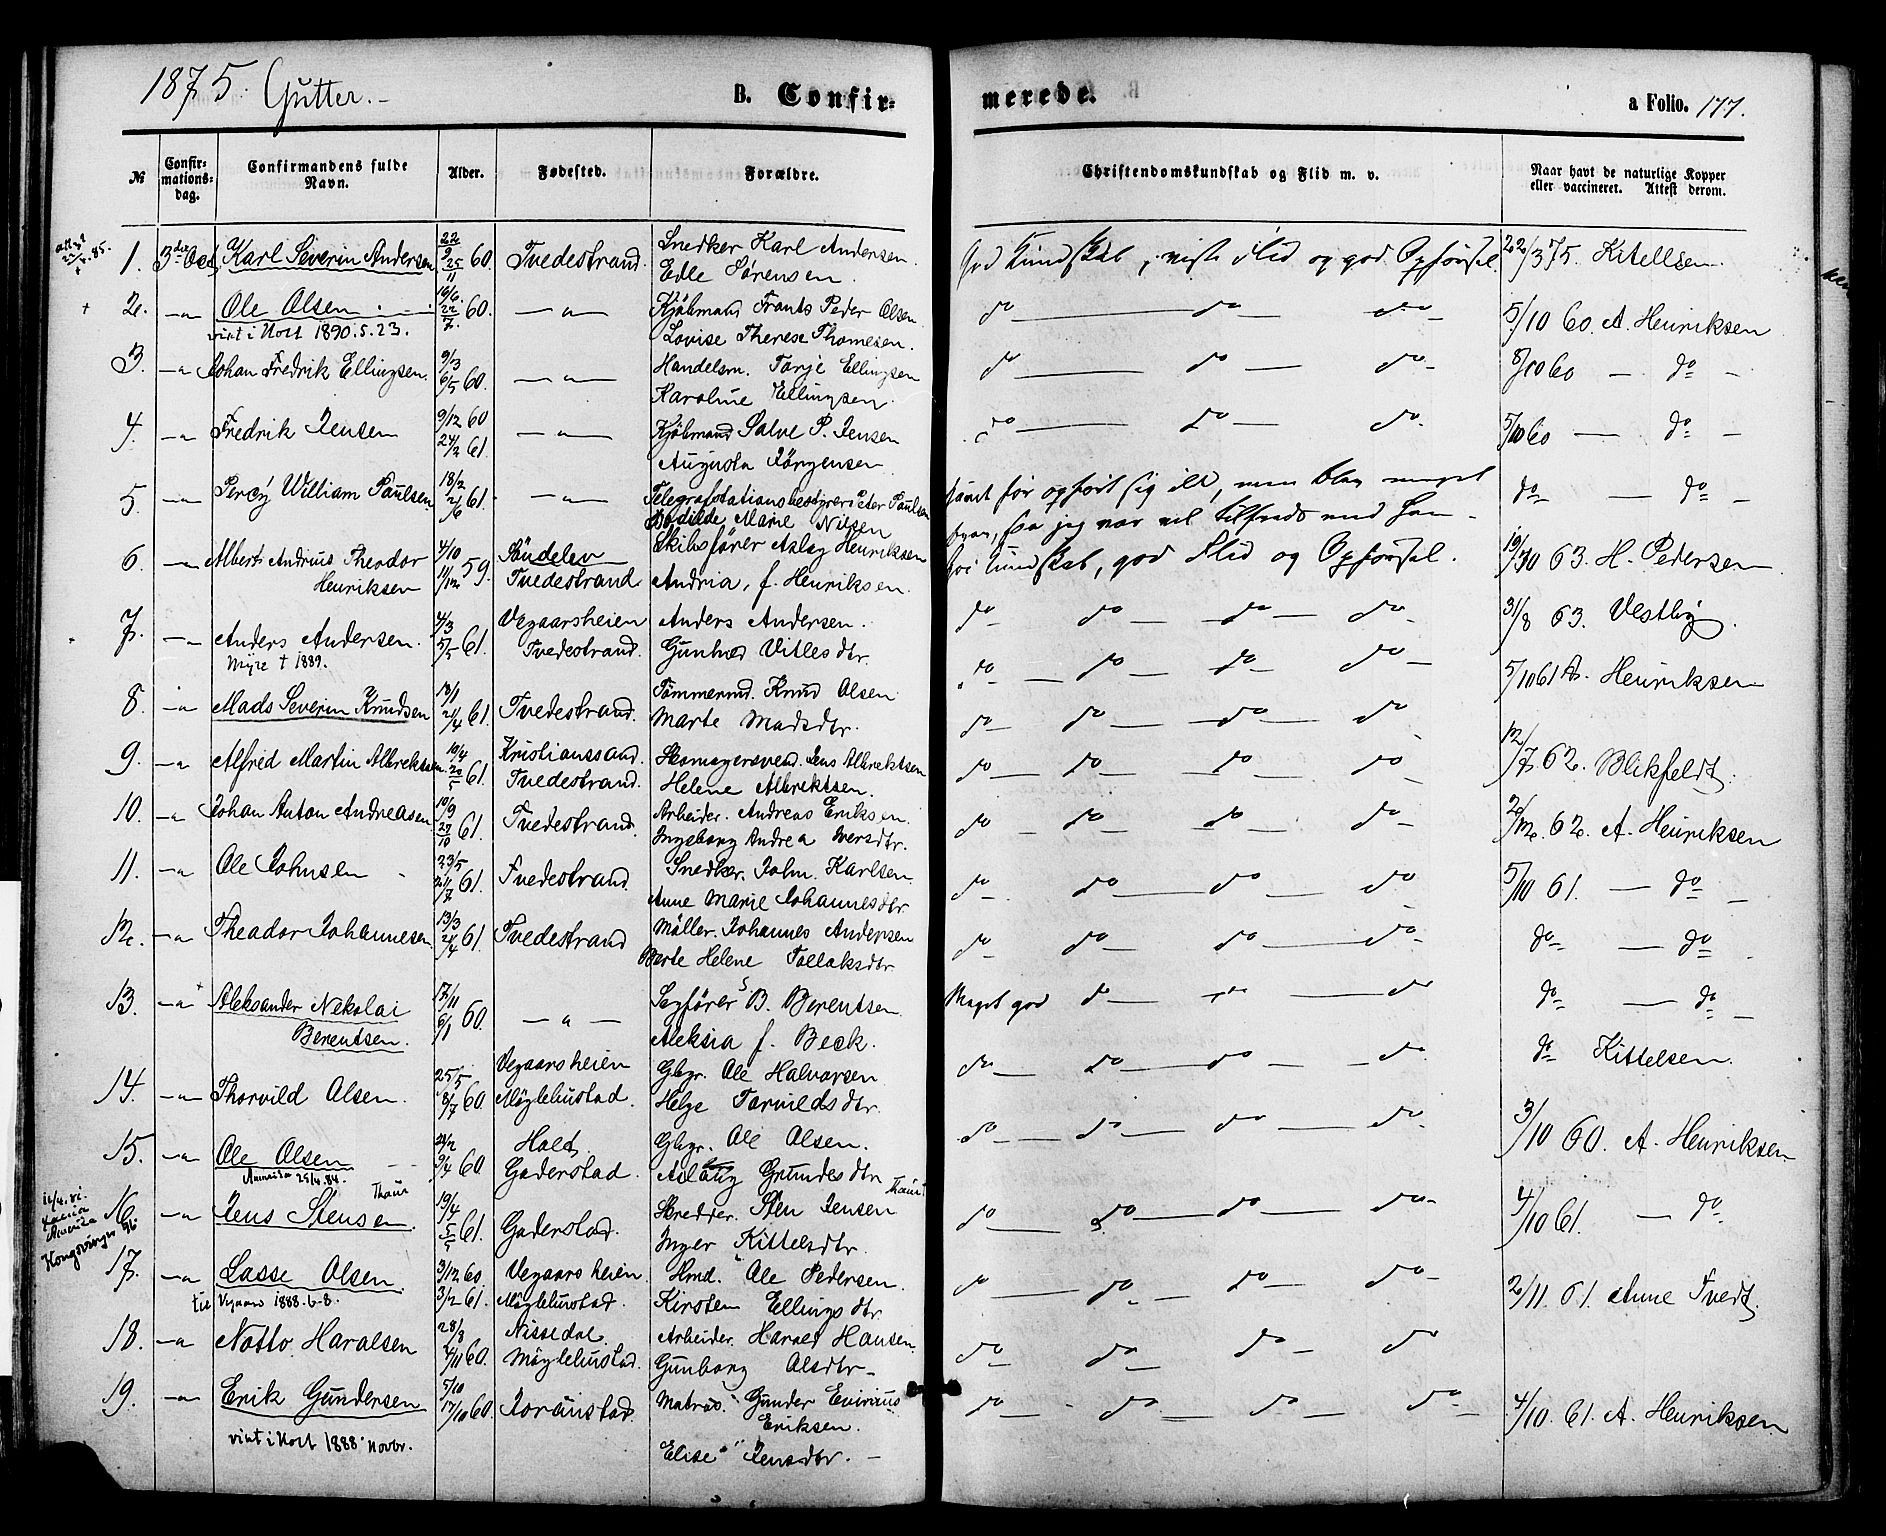 1875. Gutter.-
B. Confir-
merede.
a Folio. 177.
№
Confir-
mations-
dag.
Confirmandens fulde
Navn.
Alder.
Fødested.
Forældre.
Christendomskundskab og Flid m. v.
Naar havt de naturlige Kopper
eller vaccineret. Attest derom.
1. 3die Oct. Karl Severin Andersen 60. Tvedestrand. Snedker Karl Andersen.
Edle Sørensen.
God Kundskab, Flid og god Opførsel. 22/3 75. Kitellsen.
2. —"— Ole Olsen 60. —"— Kjøbmand Frants Peder Olsen
1890.5.23. Lovise Therese Thomesen.
do do do 5/10 60. A. Henriksen
3. —"— Johan Fredrik Ellingsen. 6/5 60. —"— Handelsm. Tarje Ellingsen
Karoline Ellingsen.
do do do 8/10 60 — do —
4. —"— Fredrik Jensen 9/12 60 24/2 61. —"— Kjøbmand Salve P. Jensen
Augusta Jörgensen
do do do. 5/10 60 — do —
5. —"— Percy William Paulsen 18/2 61. —"— Telegrafstationsbestyrer Peter Paulsen
Marie Nilsen
før opført sig ild, men blev meget
saa jeg var vel tilfreds med ham
do — do —
6. —"— Albert Andrius Theodor 4/10 59. Söndelev Skibsfører Aslag Henriksen
Henriksen 11/12 Tvedestrand Andria, f. Henriksen.
god Kundskab, god Flid og Opførsel. 63. H. Pedersen
7. —"— Anders Andersen. 4/3 5/5 61. Vegaarsheien Anders Andersen.
Myre † 1889. Tvedestrand. Gunhild dtr.
do do do do 31/8 63. Vestby.
8. —"— Mads Severin Knudsen 18/1 21/4 61. Tvedestrand. Tømmermd. Knud Olsen
Marte Madsdtr.
do do do do 5/10 61 A. Henriksen
9. —"— Alfred Martin Albrektsen. 10/4 61. Kristianssand. Jens Albrektsen
Tvedestrand. Helene Albrektsen.
do do do do 12/7 62. Blikfeldt.
10. —"— Johan Anton Andreasen 10/9 27/10 61. Tvedestrand. Arbeider. Andreas Eriksen.
Ingeborg Andrea Iversdtr.
do do do do 62. A. Henriksen
11. —"— Ole Johnsen 23/5 61. Tvedestrand. Snedker. John. Karlsen.
Anne Marie Johannesdtr.
do do do do 5/10 61. — do —
12. —"— Theodor Johannesen. 13/3 61. Tvedestrand Møller. Johannes Andersen
Berte Helene Tollaksdtr
do do do do do — do
13. —"— Aleksander Nekolai 17/11 60. —"— Sagfører B. Berentsen.
Berentsen. 6/1 Aleksia f. Beck.
Meget god do do do — do —
14. —"— Thorvild Olsen. 25/5 8/7 60. Vegaarsheien Gbgr. Ole Halvorsen
Møglehustad. Helge Tarvildsdtr.
do do do do do Kittelsen.
15. —"— Ole Olsen 60 Holt Gbgr. Ole Olsen.
Amerika 25/4.84. Gaderstad. Aslaug Grundesdtr
do do do do 3/10 60. A. Henriksen
16. —"— Jens Stensen. 19/4 5/5 61. Gaderstad. Sten Jensen
Inger Kittelsdtr.
do do do do 4/10 61. — do
17. —"— Lasse Olsen. 3/12 60 3/2 61. Vegaarsheien Hmd. Ole Pedersen.
til Vegaars 1888.6-8. Møglehustad. Kirsten Ellingsdtr
do do do do 2/11 61. Anne Tvedt.
18. —"— Notto Haralsen 28/8 60. Nissedal Arbeider. Harald Hansen.
Møglehustad. Gunborg Olsdtr
do do do do
19. —"— Erik Gundersen 5/10 17/10 60. Matros. Gunder
Eriksen.
1888 Novbr. Elise Jensdtr.
do do do do 4/10. 61. A. Henriksen